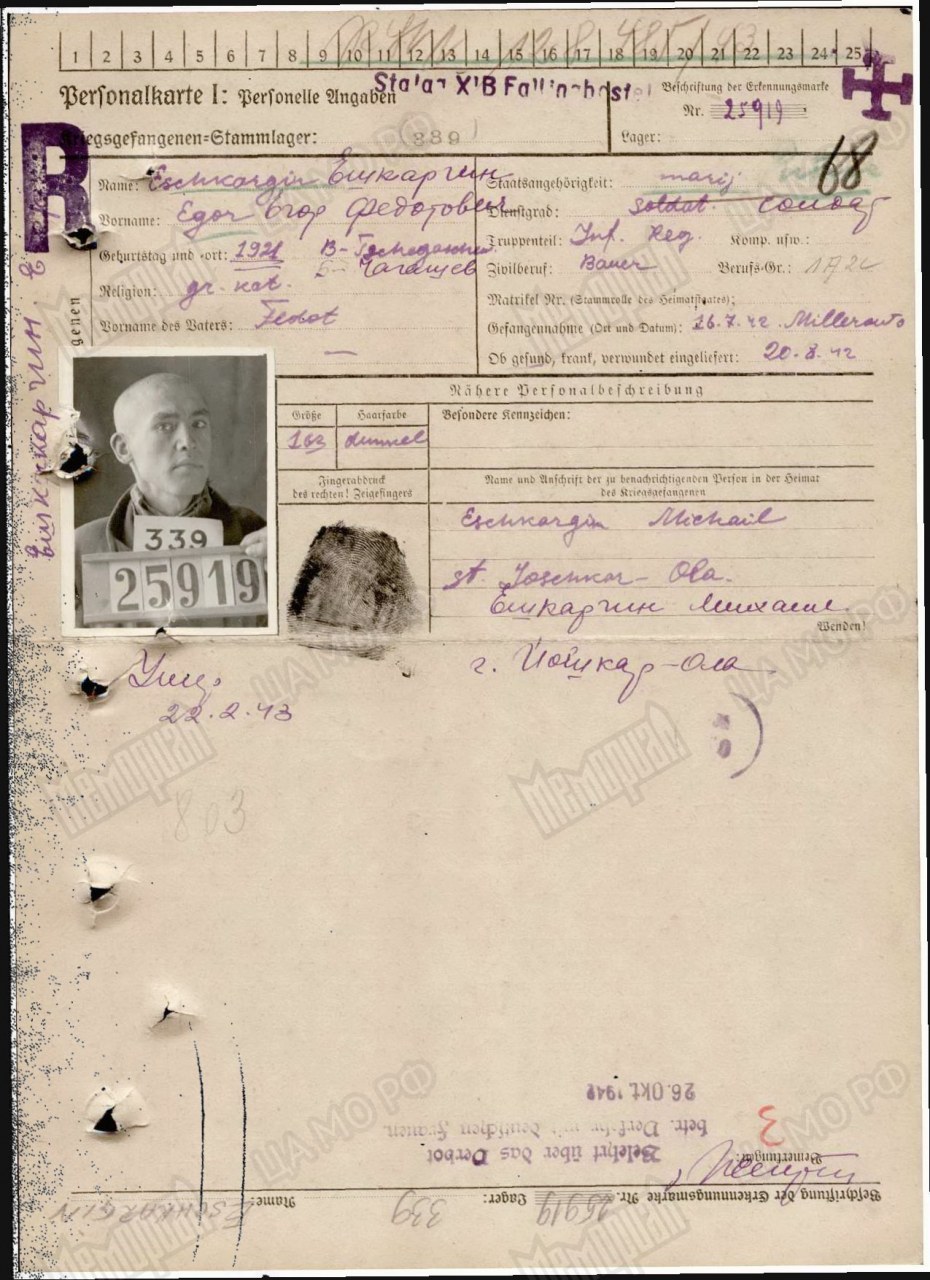 1 2 3 4 5 6 7 8 9 10 11 12 13 14 15 16 17 18 19 20 21 22 23 24 25
Stalag XIB Fallingbostel
Personalkarte I: Personelle Angaben
Beschriftung der Erkennungsmarke
Nr. 25919
Kriegsgefangenen=Stammlager: 339
Lager:
R
68
Name: Eschkargin Ешкаргин
Staatsangehörigkeit: marij
Vorname: Egor Егор Федотович
Dienstgrad: Soldat Солдат
Truppenteil: Inf. Reg. Komp. usw.:
Geburtstag und =ort: 1921
Чагашев
Zivilberuf: Bauer Berufs-Gr.:
Religion: gr. kat.
Matrikel Nr. (Stammrolle des Heimatstaates):
Vorname des Vaters: Fedot
Gefangennahme (Ort und Datum): 26.7.42 Millerowo
Ob gesund, krank, verwundet eingeliefert: 20.8.42
Ешкаргин
genen
Nähere Personalbeschreibung
Größe Haarfarbe Besondere Kennzeichen:
163 dunkel
Fingerabdruck
des rechten! Zeigefingers
Name und Anschrift der zu benachrichtigenden Person in der Heimat
des Kriegsgefangenen
339
25919
Eschkargin Michail
st. Joschkar-Ola.
Ешкаргин Михаил
Wenden!
г. Йошкар-Ола
22.2.43
803
Мемориал
ЦАМО РФ
26. OKT 1942
betr. Verkehr mit deutschen Frauen.
Belehrt über das Verbot
3
Bemerkungen:
Beschriftung der Erkennungsmarke Nr. 25919 Lager: 339 Name: ESCHKARGIN